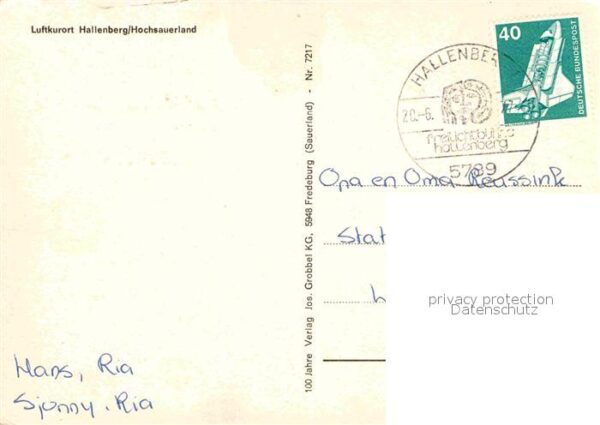 Luftkurort Hallenberg/Hochsauerland
100 Jahre Verlag Jos. Grobbel KG, 5948 Fredeburg (Sauerland) - Nr. 7217
40
DEUTSCHE BUNDESPOST
HALLENBERG
20.-6.
freilichtbühne
hallenberg
5789
Opa en Oma Reussink
Stat
privacy protection
Datenschutz
Hans, Ria
Sjonny. Ria